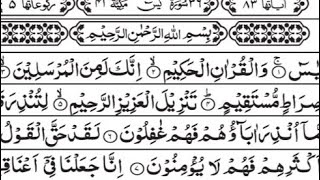 اٰیَاتُهَا ۸۳ ۳۶ سُوْرَةُ یٰسٓ مَكِّیَّةٌ ۴۱ رُكُوْعَاتُهَا ۵
بِسْمِ اللّٰهِ الرَّحْمٰنِ الرَّحِیْمِ
یٰسٓ ۚ﴿۱﴾ وَالْقُرْاٰنِ الْحَكِیْمِ ۙ﴿۲﴾ اِنَّكَ لَمِنَ الْمُرْسَلِیْنَ ۙ﴿۳﴾
صِرَاطٍ مُّسْتَقِیْمٍ ؕ﴿۴﴾ تَنْزِیْلَ الْعَزِیْزِ الرَّحِیْمِ ۙ﴿۵﴾ لِتُنْذِرَ
مَّاۤ اُنْذِرَ اٰبَآؤُهُمْ فَهُمْ غٰفِلُوْنَ ﴿۶﴾ لَقَدْ حَقَّ الْقَوْلُ
اَكْثَرِهِمْ فَهُمْ لَا یُؤْمِنُوْنَ ﴿۷﴾ اِنَّا جَعَلْنَا فِیْۤ اَعْنَاقِ